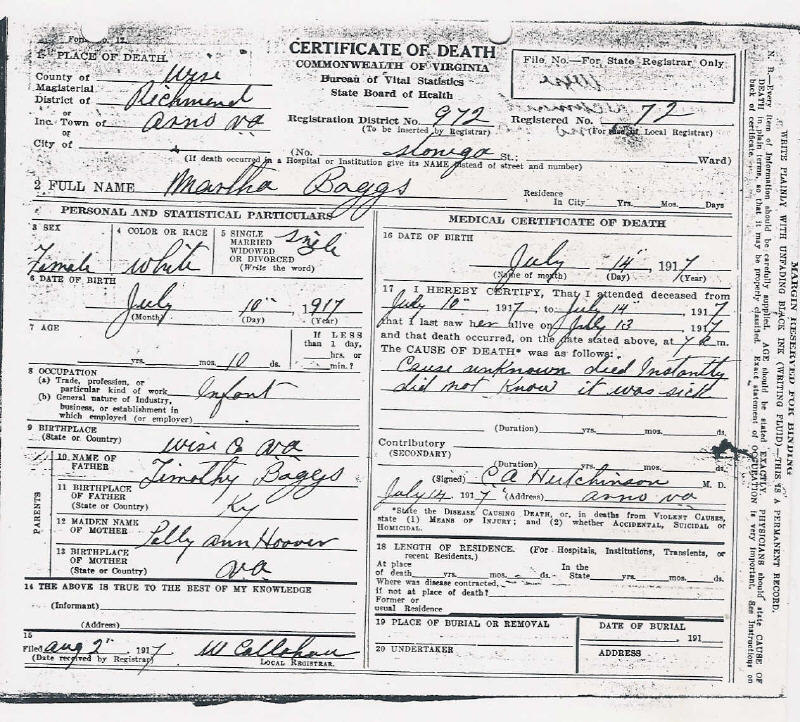 Form No. 12.
CERTIFICATE OF DEATH
COMMONWEALTH OF VIRGINIA
Bureau of Vital Statistics
State Board of Health
File No.—For State Registrar Only
1 PLACE OF DEATH
County of Wise
Magisterial District of Richmond
or
Inc. Town of Arno Va
or
City of
Registration District No. 972
(To be inserted by Registrar)
Registered No. 72
(For use of Local Registrar)
(No. Stonega St.; Ward)
(If death occurred in a Hospital or Institution give its NAME instead of street and number)
2 FULL NAME Martha Baggs
Residence In City Yrs. Mos. Days
PERSONAL AND STATISTICAL PARTICULARS
3 SEX Female
4 COLOR OR RACE White
5 SINGLE MARRIED WIDOWED OR DIVORCED (Write the word) Single
6 DATE OF BIRTH
July 10" 1917
(Month) (Day) (Year)
7 AGE
yrs. mos. 10 ds.
If LESS than 1 day, hrs. or min.?
8 OCCUPATION
(a) Trade, profession, or particular kind of work Infant
(b) General nature of Industry, business, or establishment in which employed (or employer)
9 BIRTHPLACE
(State or Country) Wise Co Va
PARENTS
10 NAME OF FATHER Timothy Baggs
11 BIRTHPLACE OF FATHER (State or Country) Ky
12 MAIDEN NAME OF MOTHER Polly Ann Hoover
13 BIRTHPLACE OF MOTHER (State or Country) Va
14 THE ABOVE IS TRUE TO THE BEST OF MY KNOWLEDGE
(Informant)
(Address)
15
Filed Aug 2" 1917 W Callahan
(Date received by Registrar) LOCAL REGISTRAR.
MEDICAL CERTIFICATE OF DEATH
16 DATE OF BIRTH
July 14" 1917
(Name of month) (Day) (Year)
17 I HEREBY CERTIFY, That I attended deceased from
July 10" 1917, to July 14" 1917
that I last saw her alive on July 13 1917
and that death occurred, on the date stated above, at 7 a m.
The CAUSE OF DEATH* was as follows:
Cause unknown died Instantly
did not know it was sick
(Duration) yrs. mos. ds.
Contributory
(SECONDARY)
(Duration) yrs. mos. ds.
(Signed) C A Hutchinson M. D.
July 14 1917 (Address) Arno Va
*State the DISEASE CAUSING DEATH, or, in deaths from VIOLENT CAUSES,
state (1) MEANS OF INJURY; and (2) whether ACCIDENTAL, SUICIDAL or
HOMICIDAL.
18 LENGTH OF RESIDENCE. (For Hospitals, Institutions, Transients, or
recent Residents.)
At place of death yrs. mos. ds. In the State yrs. mos. ds.
Where was disease contracted,
if not at place of death?
Former or
usual Residence
19 PLACE OF BURIAL OR REMOVAL
DATE OF BURIAL
191
20 UNDERTAKER
ADDRESS
MARGIN RESERVED FOR BINDING
WRITE PLAINLY WITH UNFADING BLACK INK (WRITING FLUID)—THIS IS A PERMANENT RECORD.
N. B.—Every item of information should be carefully supplied. AGE should be stated EXACTLY. PHYSICIANS should state CAUSE OF
DEATH in plain terms, so that it may be properly classified. Exact statement of OCCUPATION is very important. See Instructions on
back of certificate.